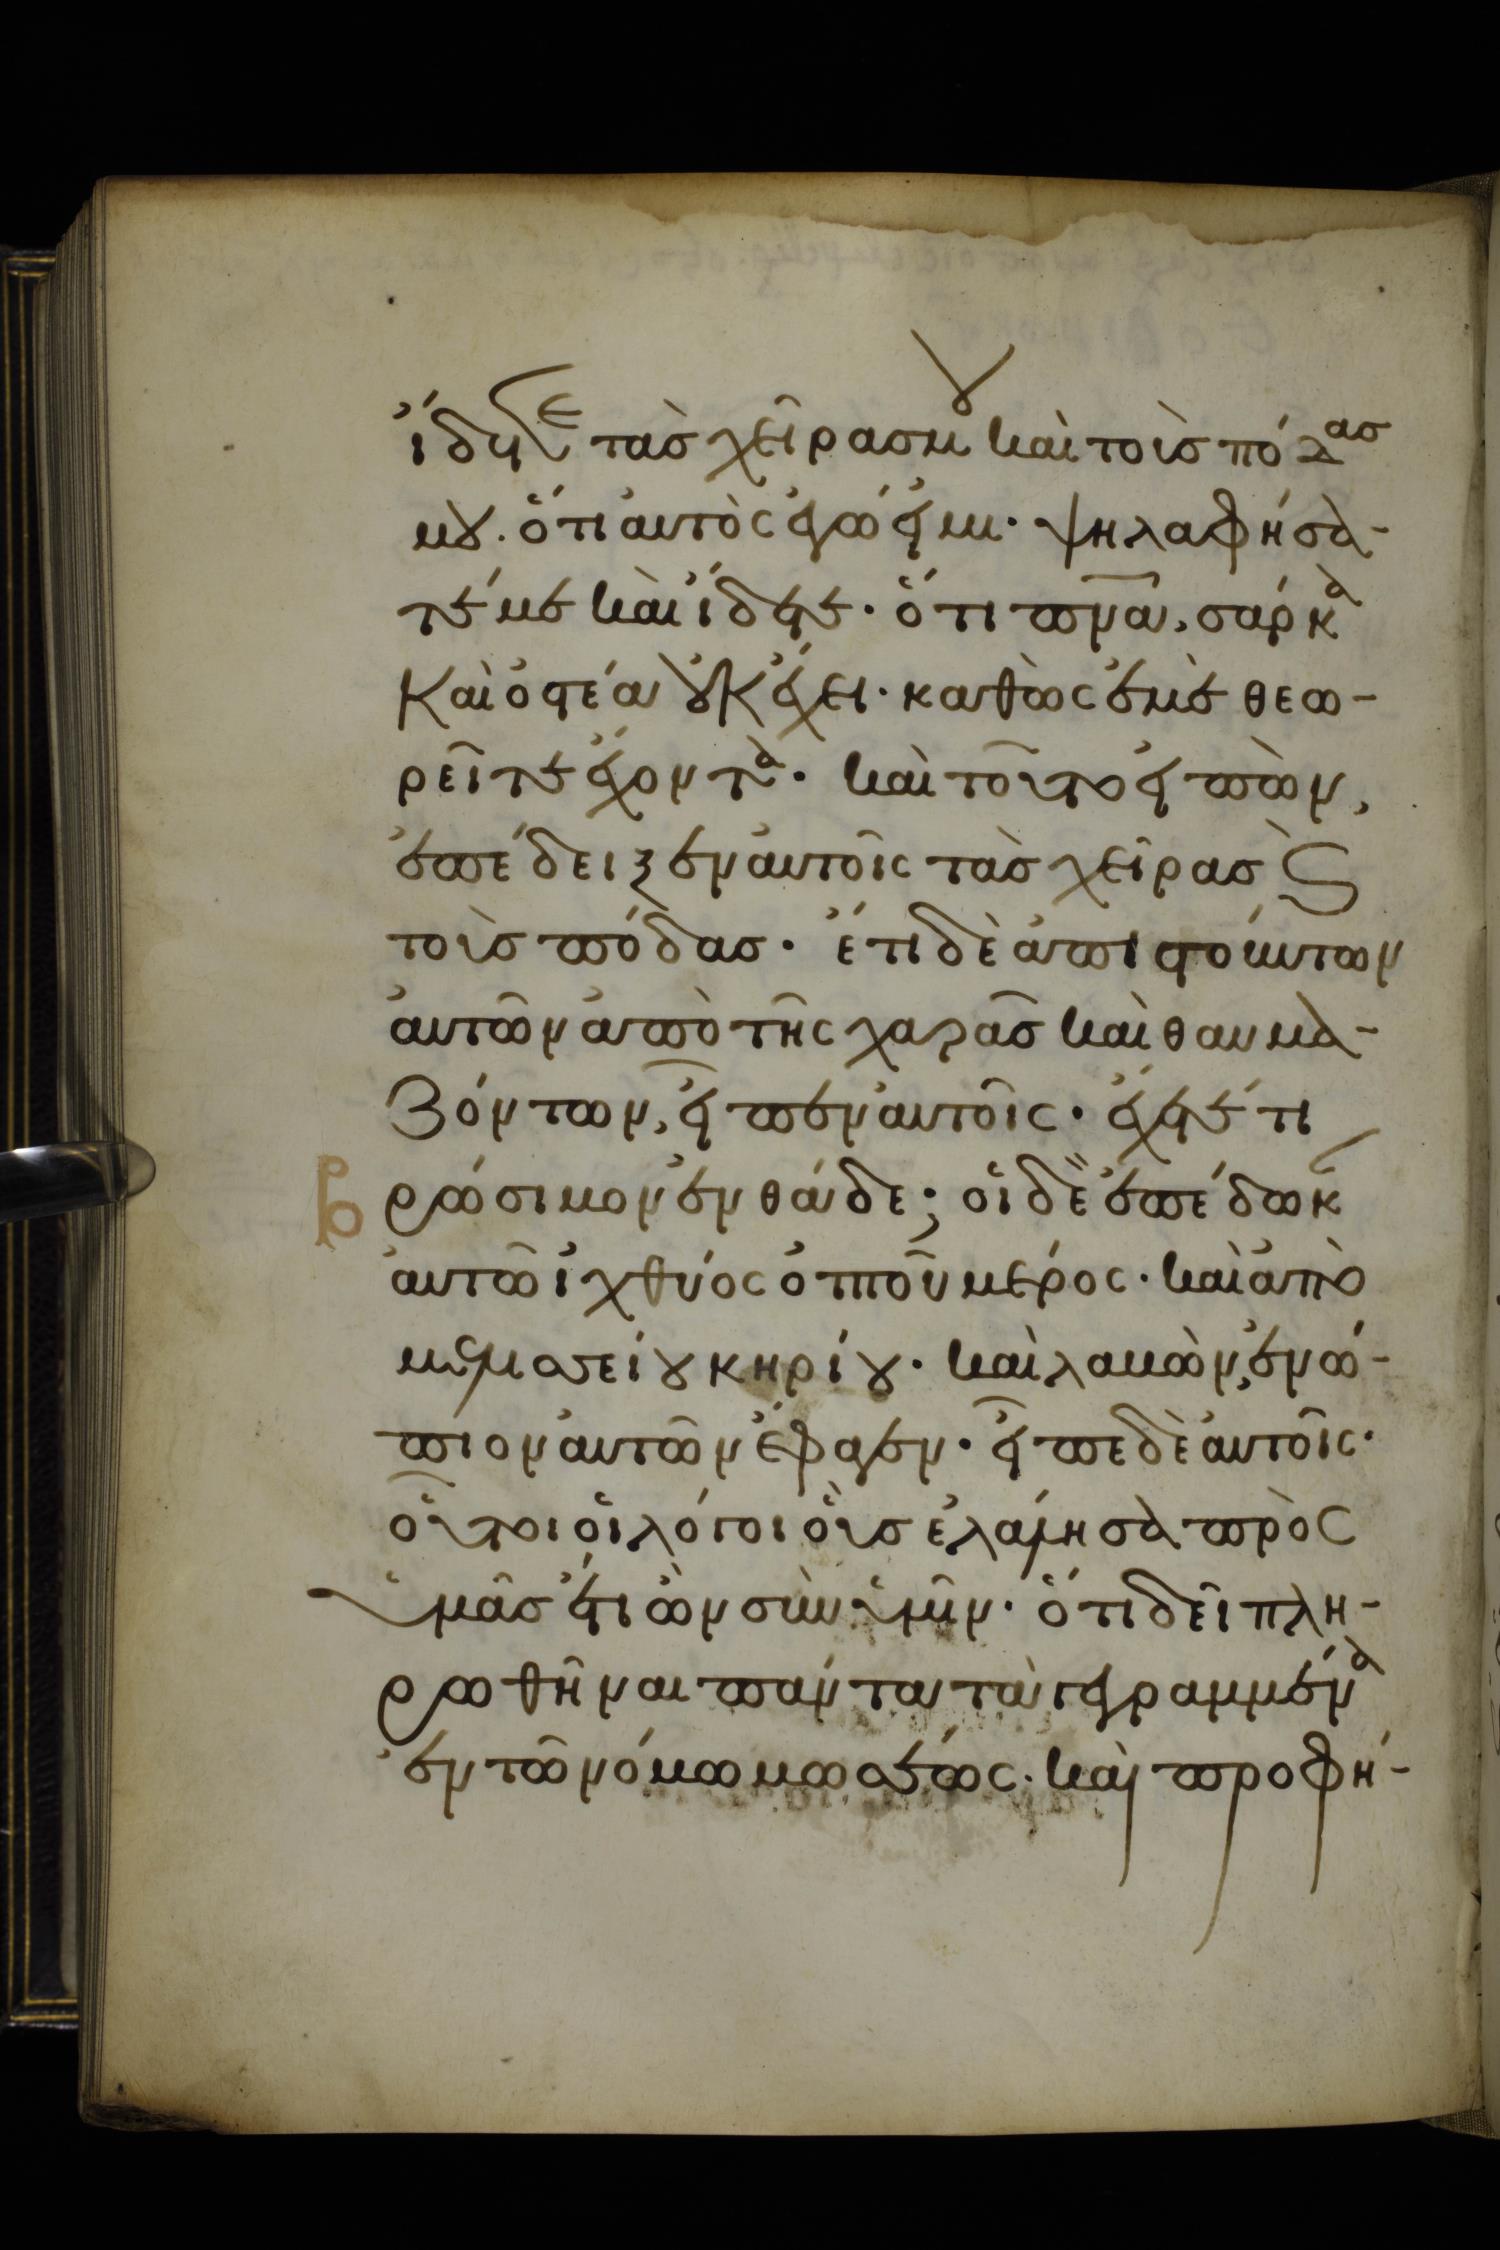 ἴδετε τὰσ χεῖρασ μου καὶ τοὺσ πόδασ
μου. ὅτι αὐτὸς ἐγώ εἰμι· ψηλαφήσα-
τέ με καὶ ἴδετε· ὅτι πνα, σάρκα
καὶ ὀστέα οὐκ ἔχει· καθὼς ἐμὲ θεω-
ρεῖτε ἔχοντα· καὶ τοῦτο εἰπὼν,
ἐπέδειξεν αὐτοῖς τὰσ χεῖρασ ϗ
τοὺσ πόδασ· ἔτι δὲ ἀπιστούντων
αὐτῶν ἀπὸ τῆς χαρᾶσ καὶ θαυμα-
ζόντων, εἶπεν αὐτοῖς· ἔχετέ τι
βρώσιμον ἐνθάδε; οἱ δὲ ἐπέδωκ
αὐτῶ ἰχθύος ὀπτοῦ μέρος· καὶ ἀπὸ
μελισσείου κηρίου· καὶ λαβὼν, ἐνώ-
πιον αὐτῶν ἔφαγεν· εἶπε δὲ αὐτοῖς·
οὗτοι οἱ λόγοι οὓσ ἐλάλησα πρὸς
ὑμᾶσ ἔτι ὢν σὺν ὑμῖν· ὅτι δεῖ πλη-
ρωθῆναι πάντα τὰ γεγραμμένα
ἐν τῶ νόμω μωσέως· καὶ προφή-